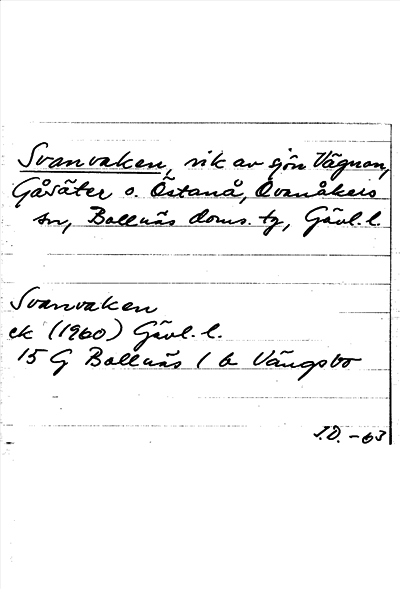 Svanvaken, vik av sjön Vägnan,
Gåsäter o. Östanå, Ovanåkers
sn, Bollnäs doms. tg, Gävl. l.
Svanvaken
ek (1960) Gävl. l.
15 G Bollnäs 1 b Vängsbo
J.D. -63